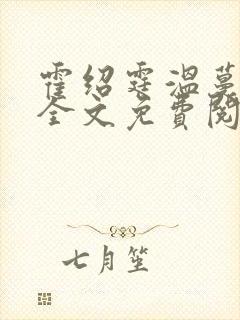 霍绍霆温蔓
全文免费阅
七月笙